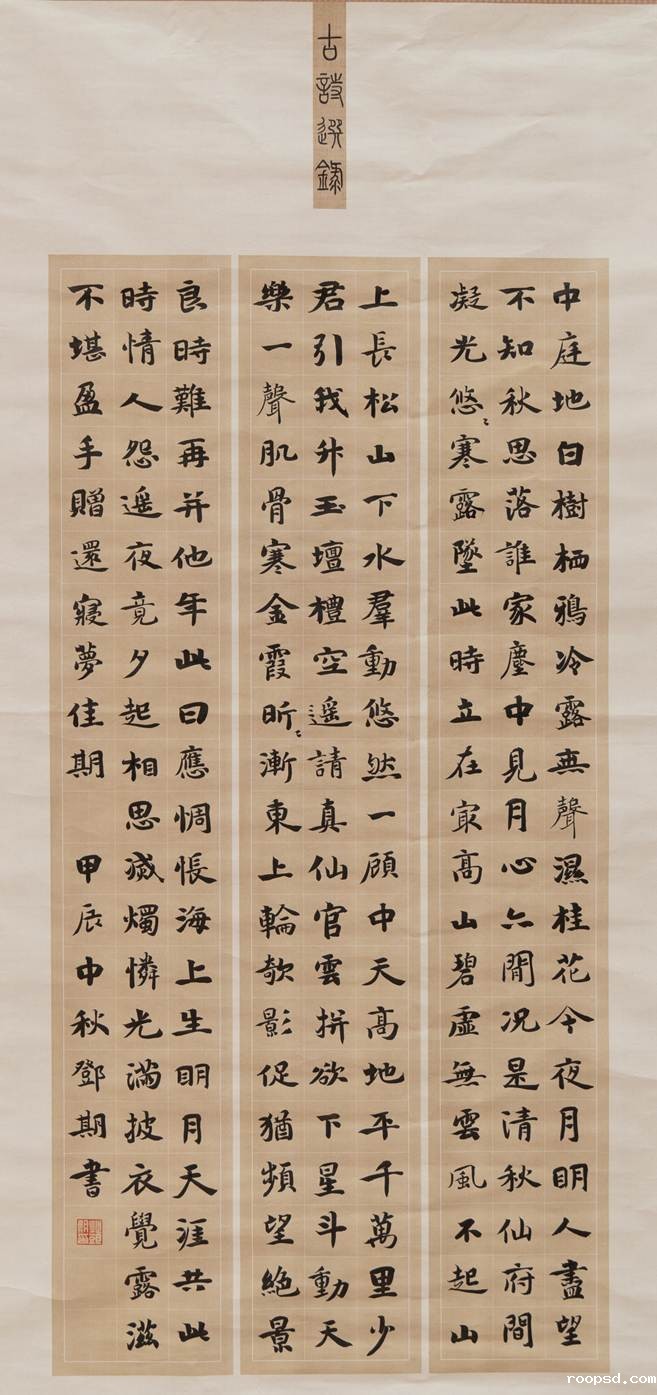 古詩選錄
中庭地白樹栖鴉冷露無聲濕桂花今夜月明人盡望
不知秋思落誰家塵中見月心亦閒况是清秋仙府間
凝光悠〻寒露墜此時立在最高山碧虛無雲風不起山
上長松山下水羣動悠然一顧中天高地平千萬里少
君引我升玉壇禮空遙請真仙官雲拼欲下星斗動天
樂一聲肌骨寒金霞昕〻漸東上輪欹影促猶頻望絕景
良時難再并他年此日應惆悵海上生明月天涯共此
時情人怨遙夜竟夕起相思滅燭憐光滿披衣覺露滋
不堪盈手贈還寢夢佳期 甲辰中秋鄧期書
roopsd.com